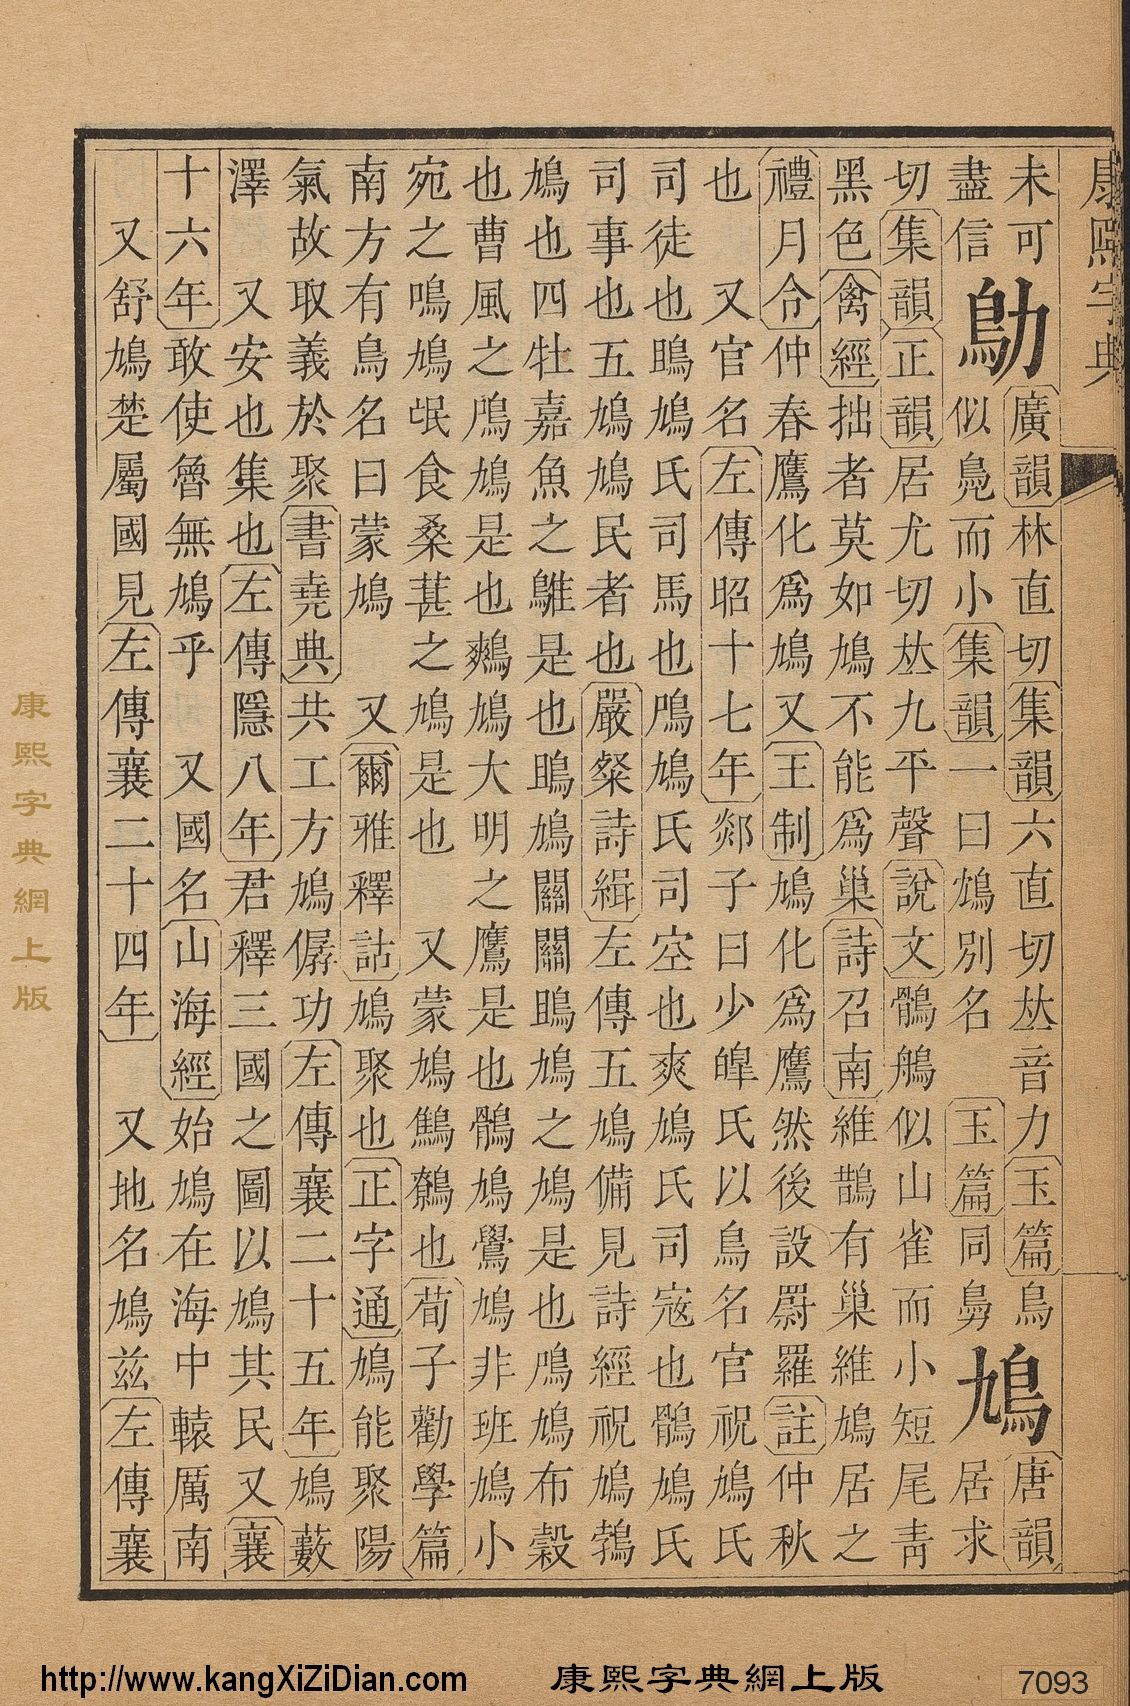 康熙字典
未可𪀖廣韻林直切集韻六直切𠀤音力玉篇鳥鳩唐韻
盡信似鳧而小集韻一曰鳩別名玉篇同𪆀居求
切集韻正韻居尤切𠀤九平聲說文鶻鵃似山雀而小短尾靑
黑色禽經拙者莫如鳩不能爲巢詩召南維鵲有巢維鳩居之
禮月令仲春鷹化爲鳩又王制鳩化爲鷹然後設罻羅註仲秋
也又官名左傳昭十七年郯子曰少皥氏以鳥名官祝鳩氏
司徒也鴡鳩氏司馬也鳲鳩氏司空也爽鳩氏司寇也鶻鳩氏
司事也五鳩鳩民者也嚴粲詩緝左傳五鳩備見詩經祝鳩鵓
鳩也四牡嘉魚之鵻是也鴡鳩關關鴡鳩之鳩是也鳲鳩布穀
也曹風之鳲鳩是也鷞鳩大明之鷹是也鶻鳩鷽鳩非班鳩小
宛之鳴鳩氓食桑葚之鳩是也又蒙鳩鷦鷯也荀子勸學篇
南方有鳥名曰蒙鳩又爾雅釋詁鳩聚也正字通鳩能聚陽
氣故取義於聚書堯典共工方鳩僝功左傳襄二十五年鳩藪
澤又安也集也左傳隱八年君釋三國之圖以鳩其民又襄
十六年敢使魯無鳩乎又國名山海經始鳩在海中轅厲南
又舒鳩楚屬國見左傳襄二十四年又地名鳩兹左傳襄
康熙字典網上版
http://www.kangXiZiDian.com 康熙字典網上版 7093